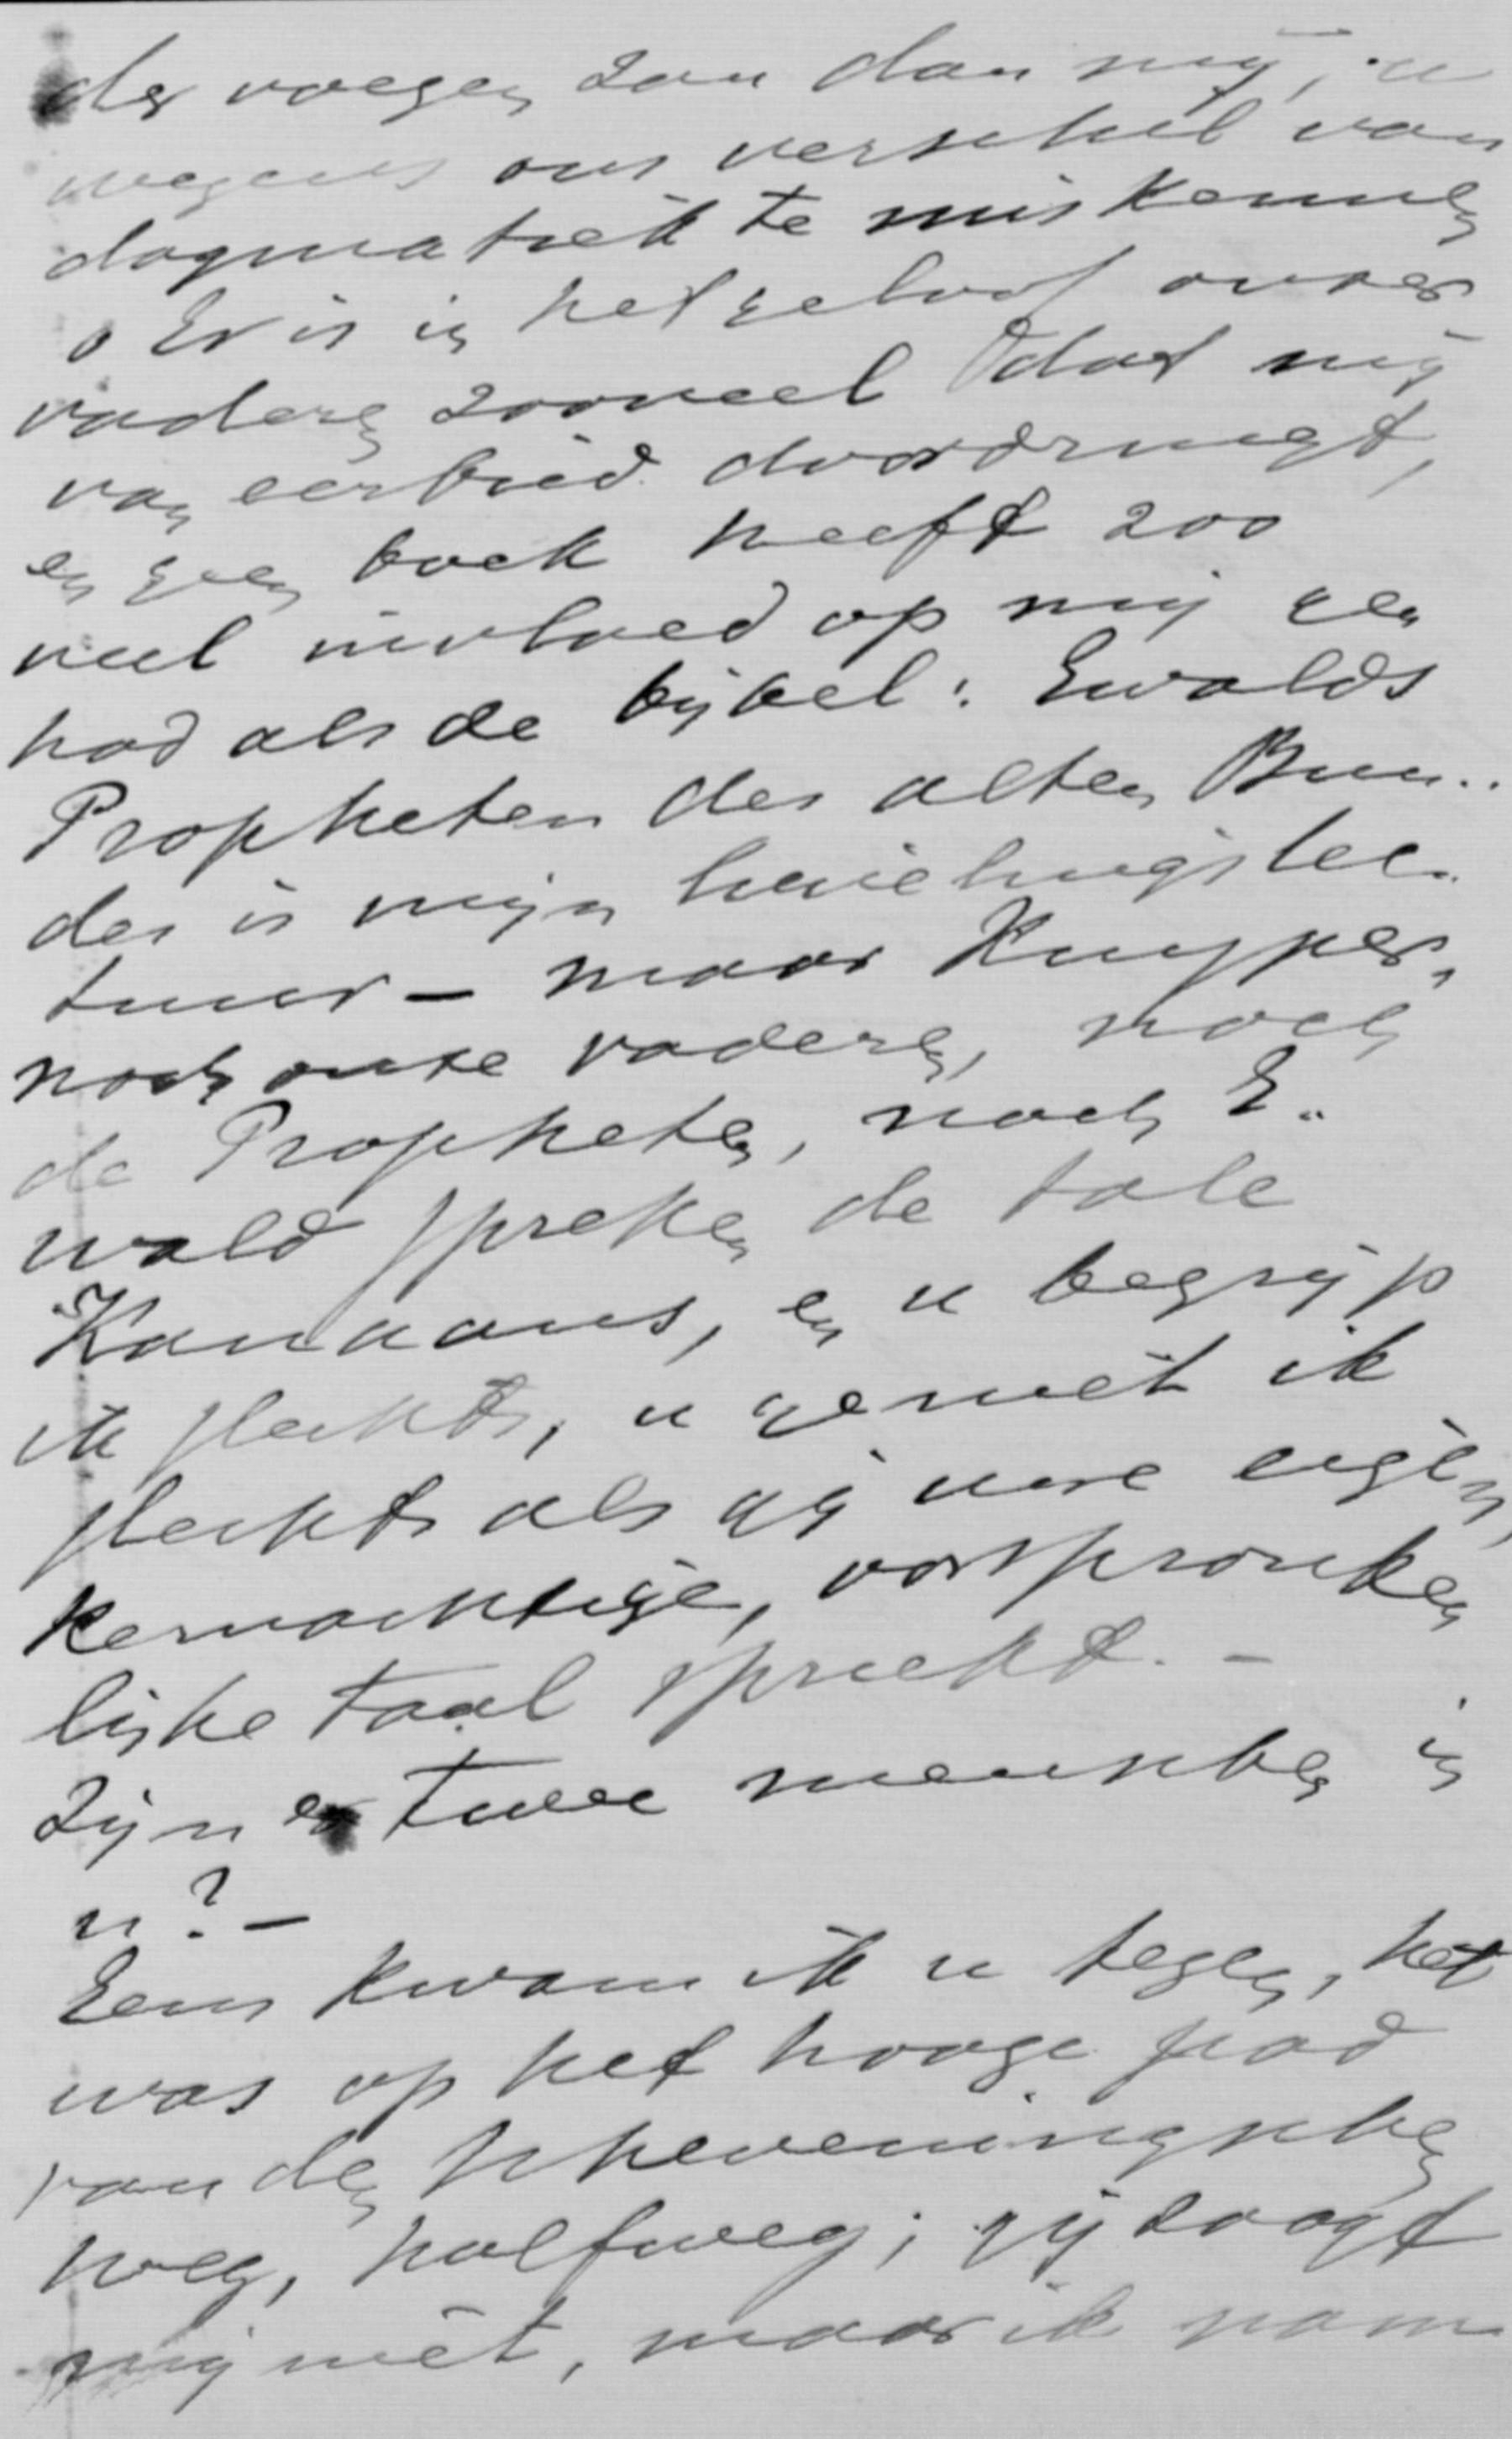 der voegen zou dan mij, u
wegens ons verschil van
dogmatiek te miskennen
o Er is in het geloof onzer
vaderen zooveel dat mij
van eerbied doordringt,
en geen boek heeft zoo
veel invloed op mij ge
had als de bijbel: Ewalds
Propheten des alten Bun..
des is mijn lievelingslec..
tuur – maar Kuyper,
noch onze vaderen, noch
de Propheten, noch E..
wald spreken de tale
Kanaans, en u begrijp
ik slechts, u geniet ik
slechts als gij uwe eigen,
kernachtige, oorspronke
lijke taal spreekt. –
Zijn er twee menschen in
u? –
Eens kwam ik u tegen, het
was op het hooge pad
van den Scheveningschen
weg, halfweg; gij zaagt
mij niet, maar ik nam